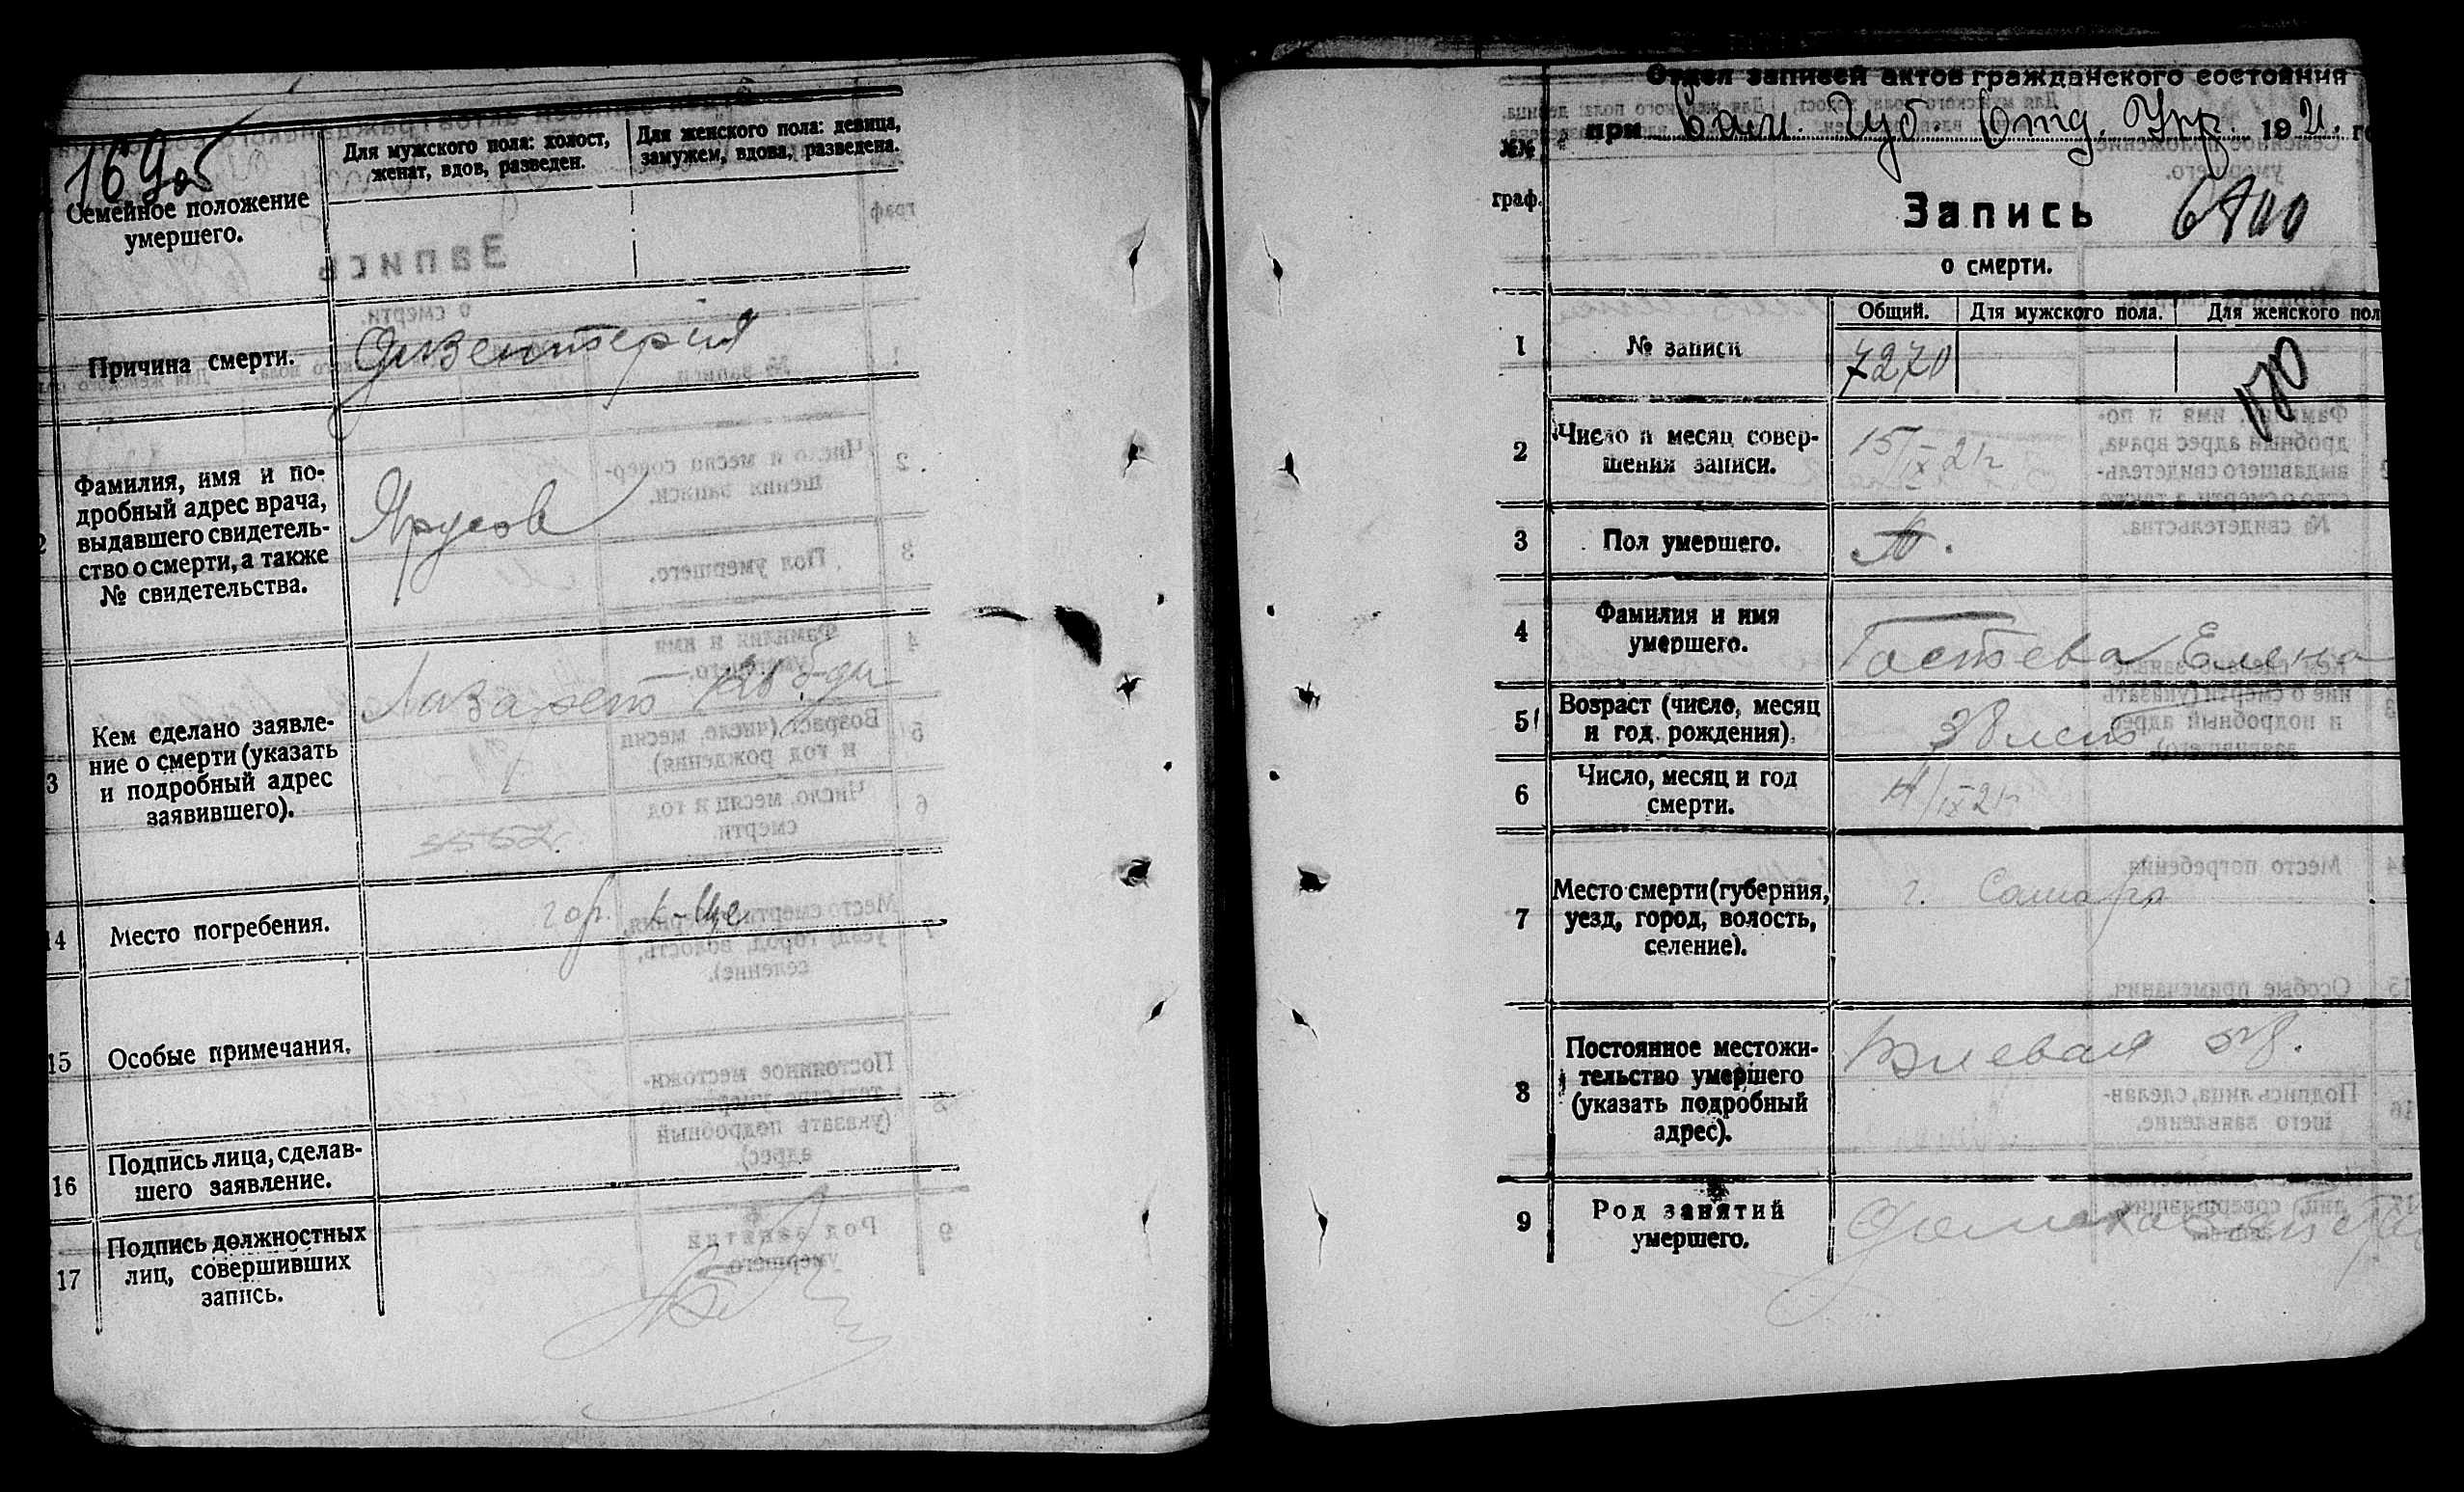 Для мужского пола: холост, женат, вдов, разведен.
Для женского пола: девица, замужем, вдова, разведена.
Семейное положение
умершего.
Причина смерти.
Дизентерия
Фамилия, имя и по-
дробный адрес врача,
выдавшего свидетель-
ство о смерти, а также
№ свидетельства.
Кем сделано заявле-
ние о смерти (указать
и подробный адрес
заявившего).
Лазарет
3552
14
Место погребения.
гор. к-ще
15
Особые примечания.
16
Подпись лица, сделав-
шего заявление.
17
Подпись должностных
лиц, совершивших
запись.
Отдел записей актов гражданского состояния
при Сам. Губ. Отд. Упр. 1921 г
№№
граф.
Запись
о смерти.
Общий. Для мужского пола. Для женского пол
1 № записи 7270
2 Число и месяц совер-
шения записи.
15/IX 21 г
3 Пол умершего.
4 Фамилия и имя
умершего.
Гостева Елена
5 Возраст (число, месяц
и год рождения).
38 лет
6 Число, месяц и год
смерти.
14/IX 21 г
7 Место смерти (губерния,
уезд, город, волость,
селение).
г. Самара
8 Постоянное местожи-
тельство умершего
(указать подробный
адрес).
9 Род занятий
умершего.